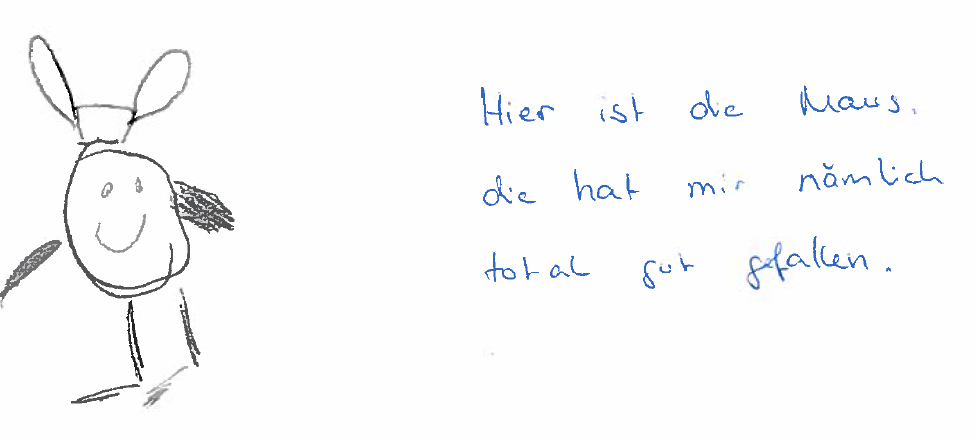 Hier ist die Maus.
die hat mir nämlich
total gut gefallen.